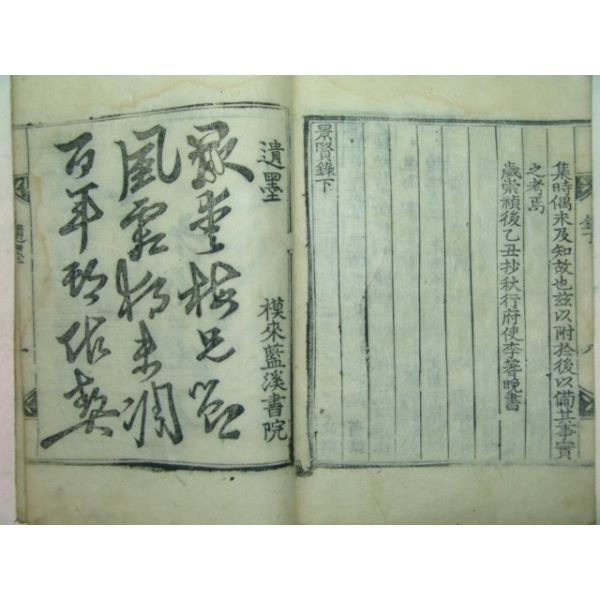 集時偶未及知故也玆以附於後以備其事實
之考焉
歲崇禎後乙丑抄秋行府使李晩書
景賢錄下
遺墨 模來藍溪書院
最愛梅兄
風霜未凋
百年契